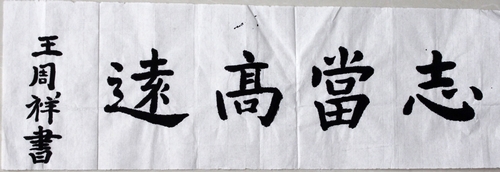 志當高遠
王周祥書